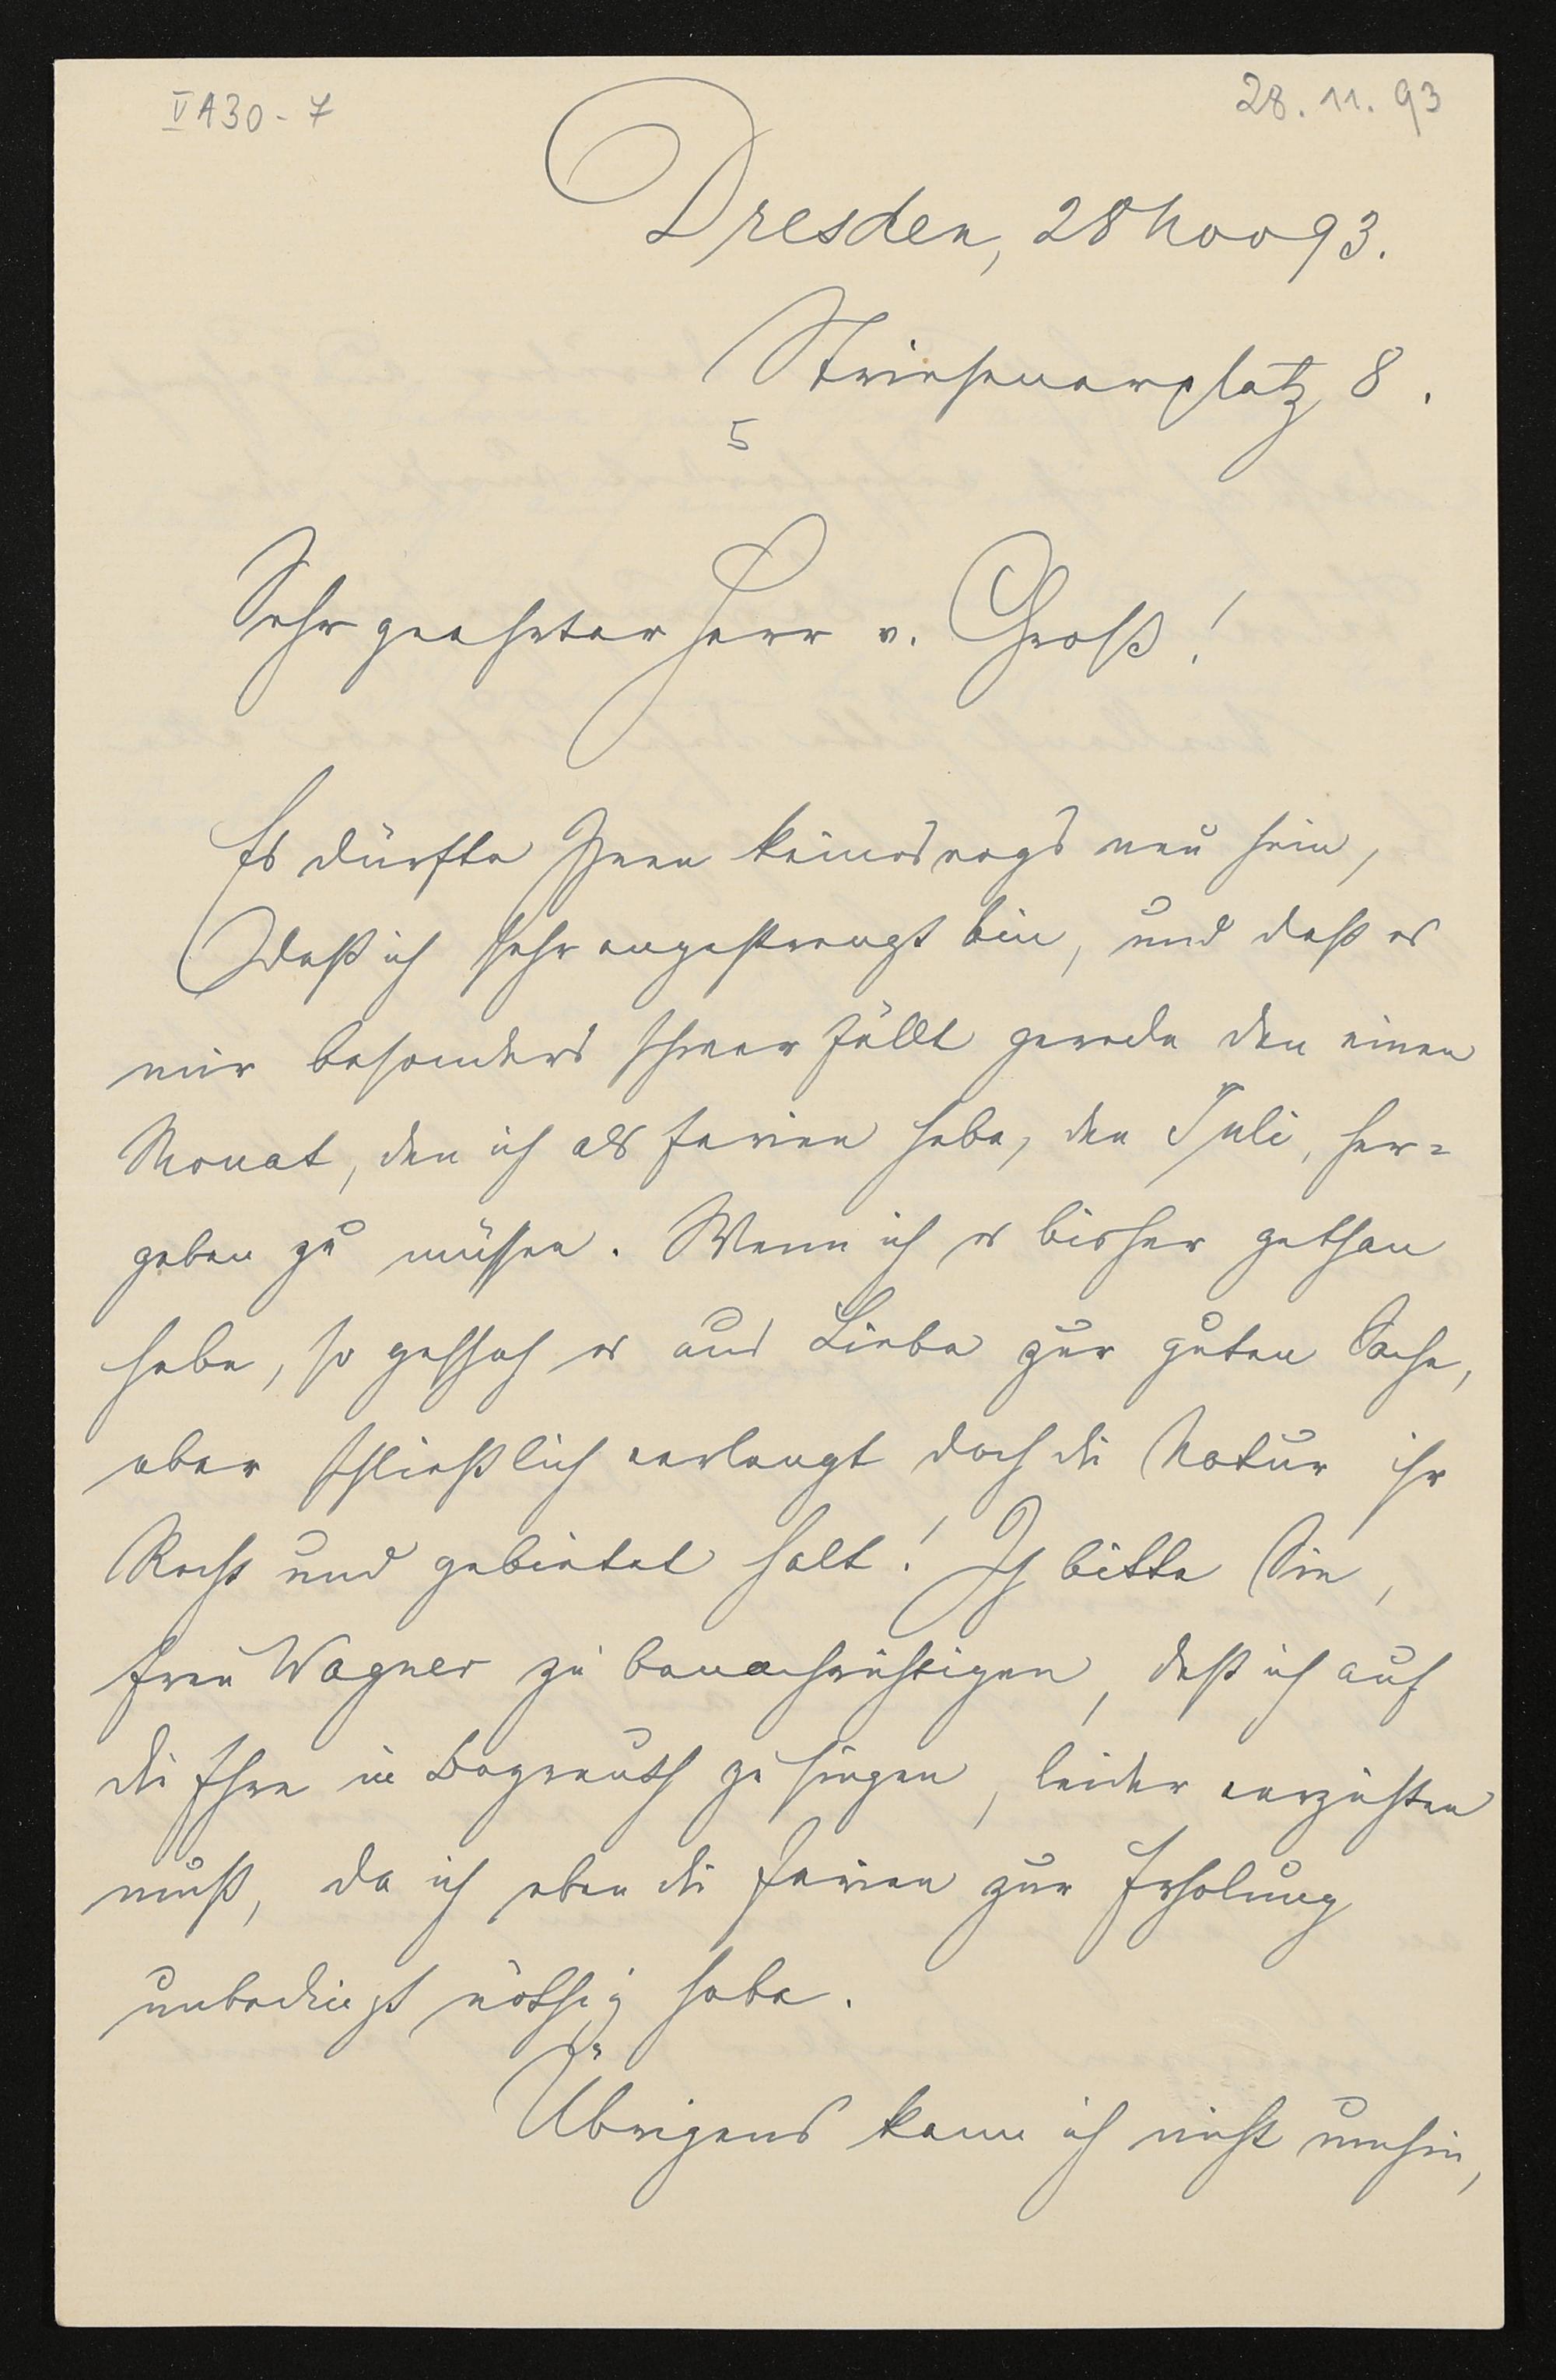 V A 30 - 7
28. 11. 93
Dresden, 28 Nov 93.
Striesenerplatz 8.
5
Sehr geehrter Herr v. Groß!
Es dürfte Ihnen keineswegs neu sein,
daß ich sehr angestrengt bin, und daß es
mir besonders schwer fällt gerade den einen
Monat, den ich als Ferien habe, den Juli, her=
geben zu müssen. Wenn ich es bisher gethan
habe, so geschah es aus Liebe zur guten Sache,
aber schließlich verlangt doch die Natur ihr
Recht und gebietet halt! Ich bitte Sie,
Frau Wagner zu benachrichtigen, daß ich auf
die Ehre in Bayreuth zu singen, leider verzichten
muß, da ich eben die Ferien zur Erholung
unbedingt nöthig habe.
Übrigens kann ich nicht umhin,